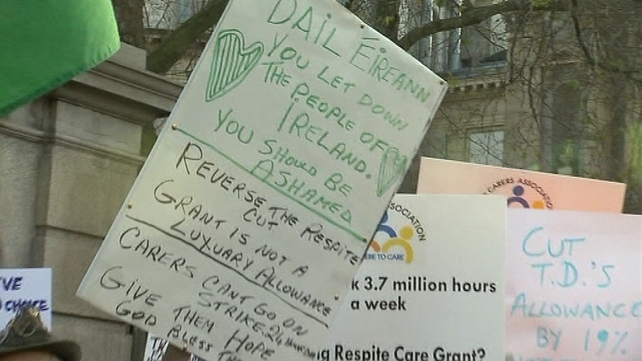 DAIL ÉIREANN
YOU LET DOWN
THE PEOPLE OF
IRELAND.
YOU SHOULD BE
ASHAMED
REVERSE THE RESPITE
CUT
GRANT IS NOT A
LUXUARY ALLOWANCE
CARERS CANT GO ON
STRIKE
GIVE THEM HOPE
GOD BLESS
CARERS ASSOCIATION
SOCIATION
ERE TO CARE
k 3.7 million hours
a week
g Respite Care Grant?
CUT
T.D.'S
ALLOWANCE
BY 19%
VE
CHOICE